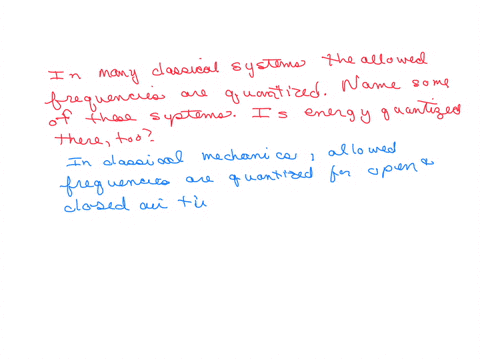 In many classical systems the allowed
frequencies are quantized. Name some
of these systems. Is energy quantized
there, too?
In classical mechanics, allowed
frequencies are quantized for open &
closed air